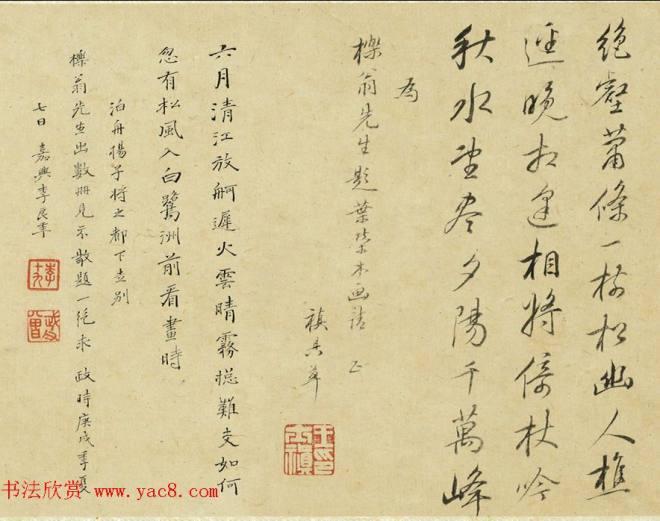 絶壑蕭條一樹松幽人樵
逕晚相逢相將倚杖吟
秋水望盡夕陽千萬峰
為
櫟翁先生題葉榮木画請正
禛
六月清江放舸遲火雲晴霧揔難支如何
忽有松風入白鷺洲前看畫時
泊舟揚子將之都下走別
櫟翁先生出數冊見示敬題一絕求 政時庚戌季夏
七日 嘉興李良年
武曾
书法欣赏 www.yac8.com